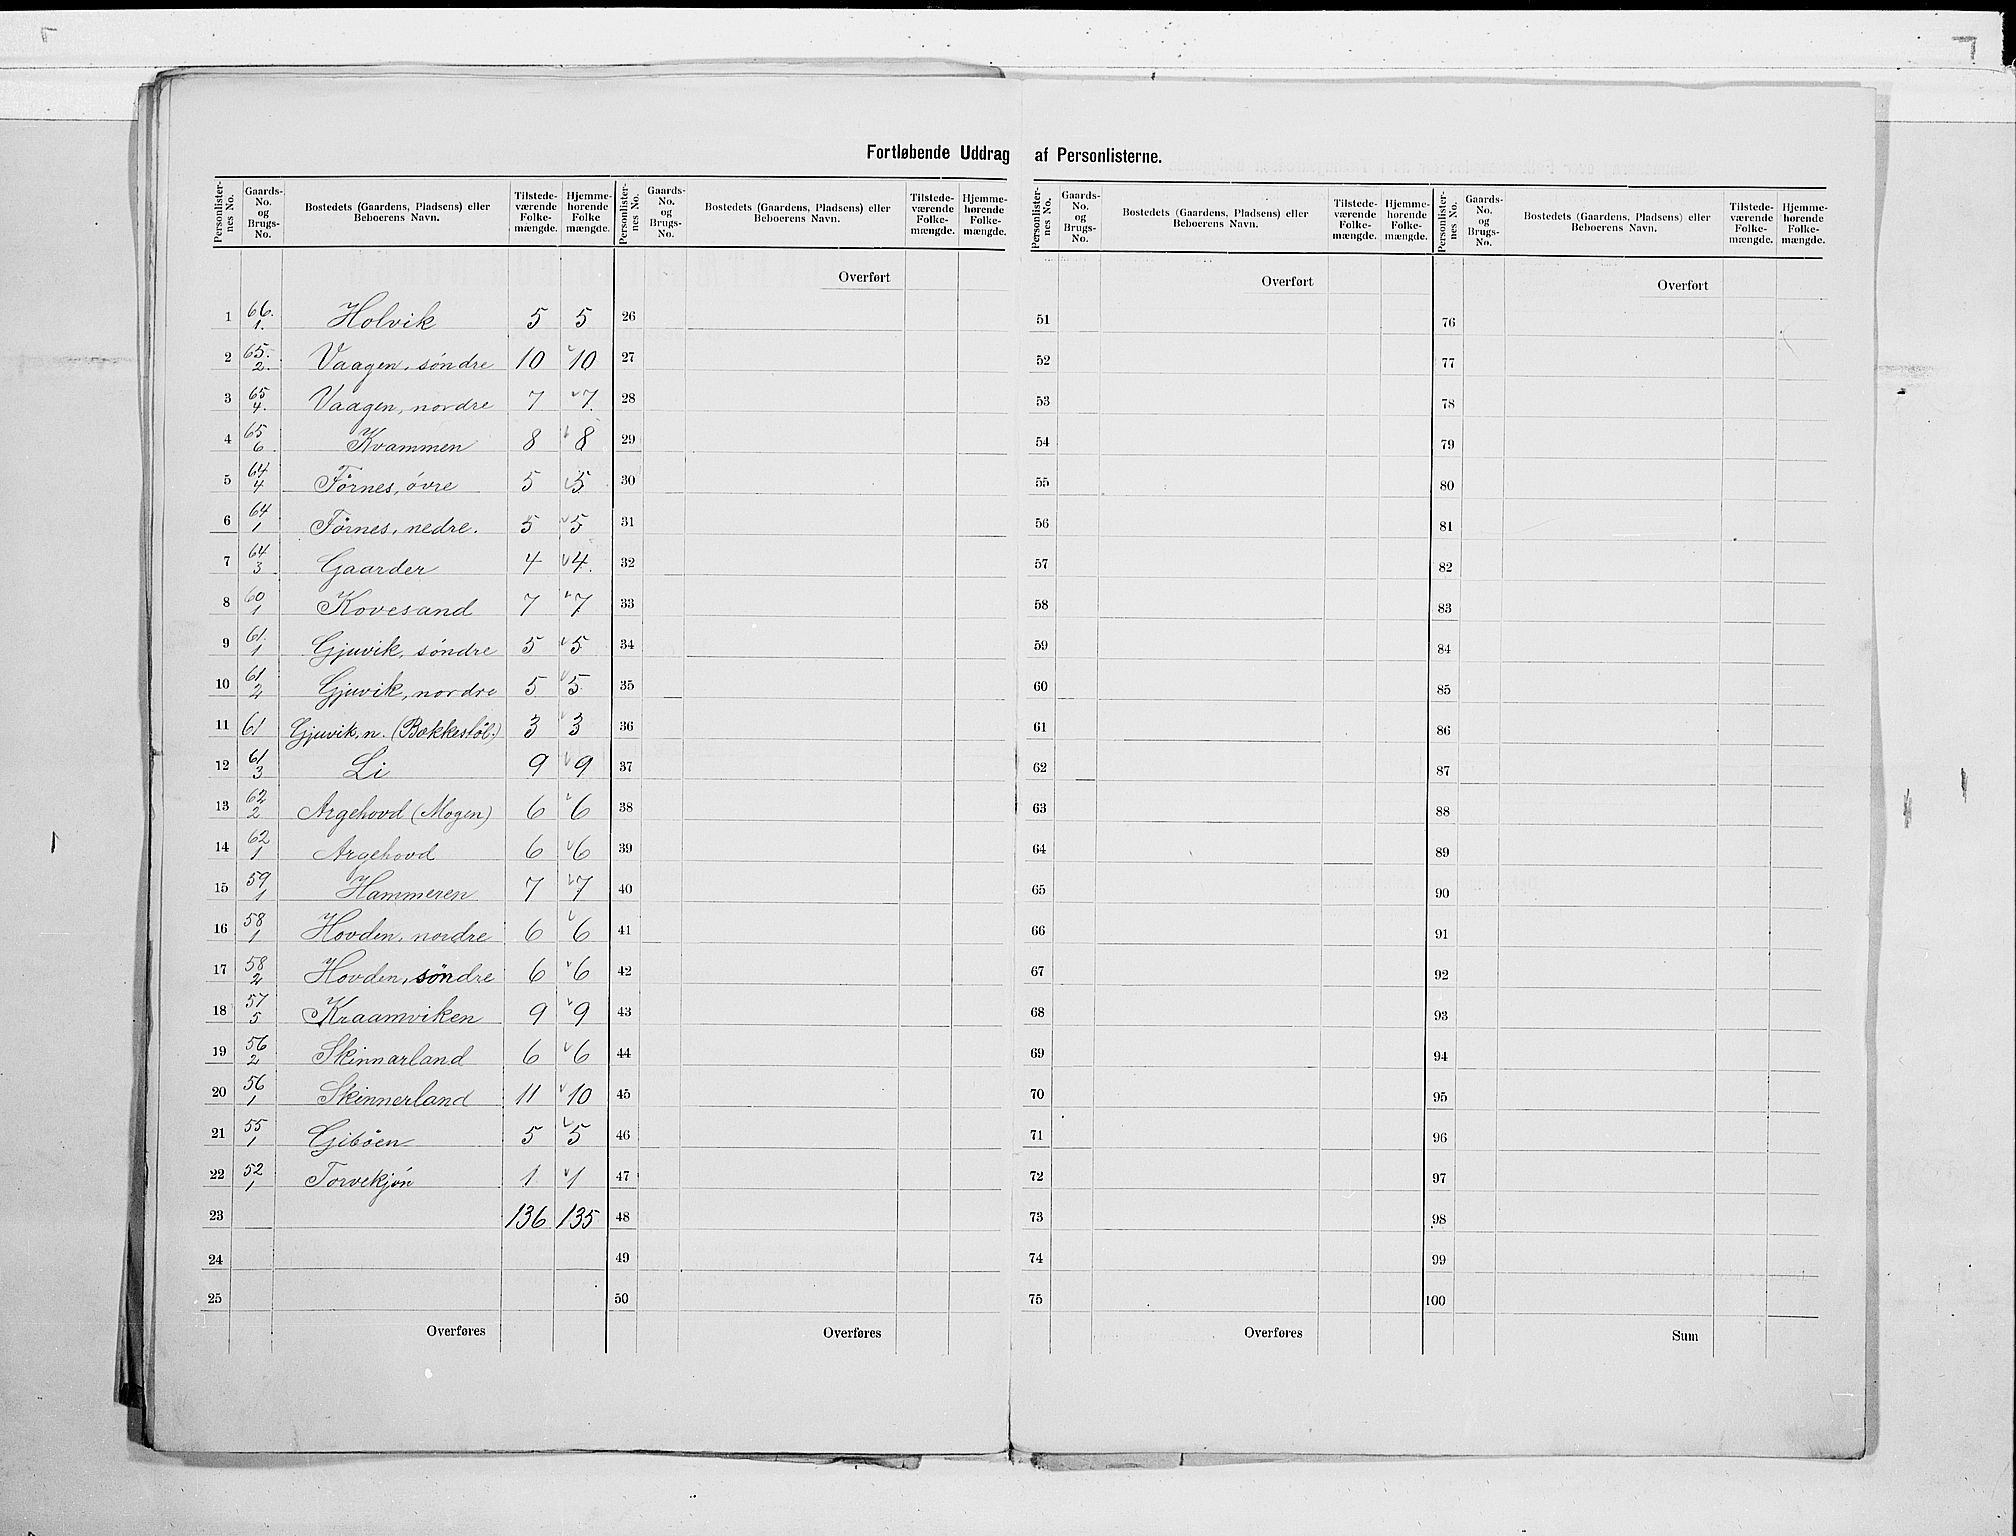 Fortløbende Uddrag af Personlisterne.
Personlister-nes No. | Gaards-No. og Brugs-No. | Bostedets (Gaardens, Pladsens) eller Beboerens Navn. | Tilstede-værende Folke-mængde. | Hjemme-hørende Folke mængde.
1 66. 1. Holvik 5 5
2 65. 2. Vaagen, søndre 10 10
3 65 4. Vaagen, nordre 7 7.
4 65 6 Kvammen 8 8
5 64 4 Förnes, övre 5 5
6 64 1 Förnes, nedre. 5 5
7 64 3 Gaarder 4 4.
8 60 1 Kovesand 7 7
9 61. 1 Gjuvik, söndre 5 5
10 61 2 Gjuvik, nordre 5 5
11 61 Gjuvik, n. (Bækkestöl.) 3 3
12 61 3 Li 9 9
13 62 2 Argehovd (Mogen) 6 6
14 62 1 Argehovd 6 6
15 59 1 Hammeren 7 7
16 58 1 Hovden, nordre 6 6
17 58 2 Hovden, söndre 6 6
18 57 5 Kraamviken 9 9
19 56 2 Skinnarland 6 6
20 56 1 Skinnerland 11 10
21 55 1 Giböen 5 5
22 52 1 Torvekjøn 1 1
23 136 135
24
25
Overføres
Personlister-nes No. | Gaards-No. og Brugs-No. | Bostedets (Gaardens, Pladsens) eller Beboerens Navn. | Tilstede-værende Folke-mængde. | Hjemme-hørende Folke-mængde.
Overført
26
27
28
29
30
31
32
33
34
35
36
37
38
39
40
41
42
43
44
45
46
47
48
49
50
Overføres
Personlister-nes No. | Gaards-No. og Brugs-No. | Bostedets (Gaardens, Pladsens) eller Beboerens Navn. | Tilstede-værende Folke-mængde. | Hjemme-hørende Folke-mængde.
Overført
51
52
53
54
55
56
57
58
59
60
61
62
63
64
65
66
67
68
69
70
71
72
73
74
75
Overføres
Personlister-nes No. | Gaards-No. og Brugs-No. | Bostedets (Gaardens, Pladsens) eller Beboerens Navn. | Tilstede-værende Folke-mængde. | Hjemme-hørende Folke-mængde.
Overført
76
77
78
79
80
81
82
83
84
85
86
87
88
89
90
91
92
93
94
95
96
97
98
99
100
Sum